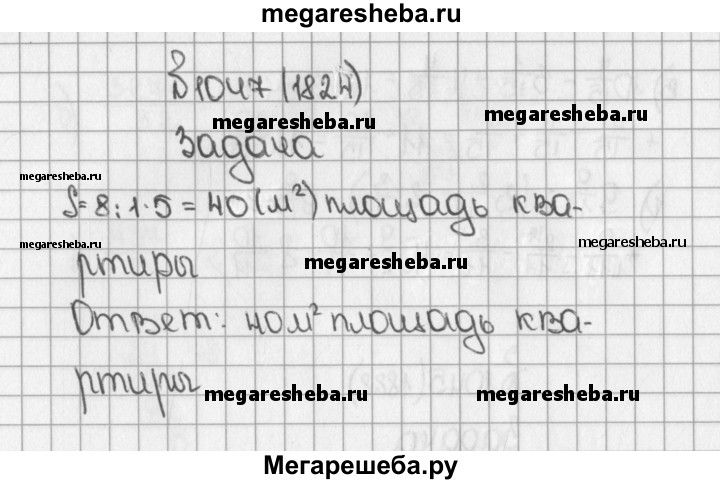 megaresheba.ru
№1047 (1824)
megaresheba.ru
megaresheba.ru
Задача
megaresheba.ru
S=8:1·5=40(м²) площадь ква-
megaresheba.ru
megaresheba.ru
ртиры
megaresheba.ru
Ответ: 40м² площадь ква-
ртиры
megaresheba.ru
megaresheba.ru
Мегарешеба.ру